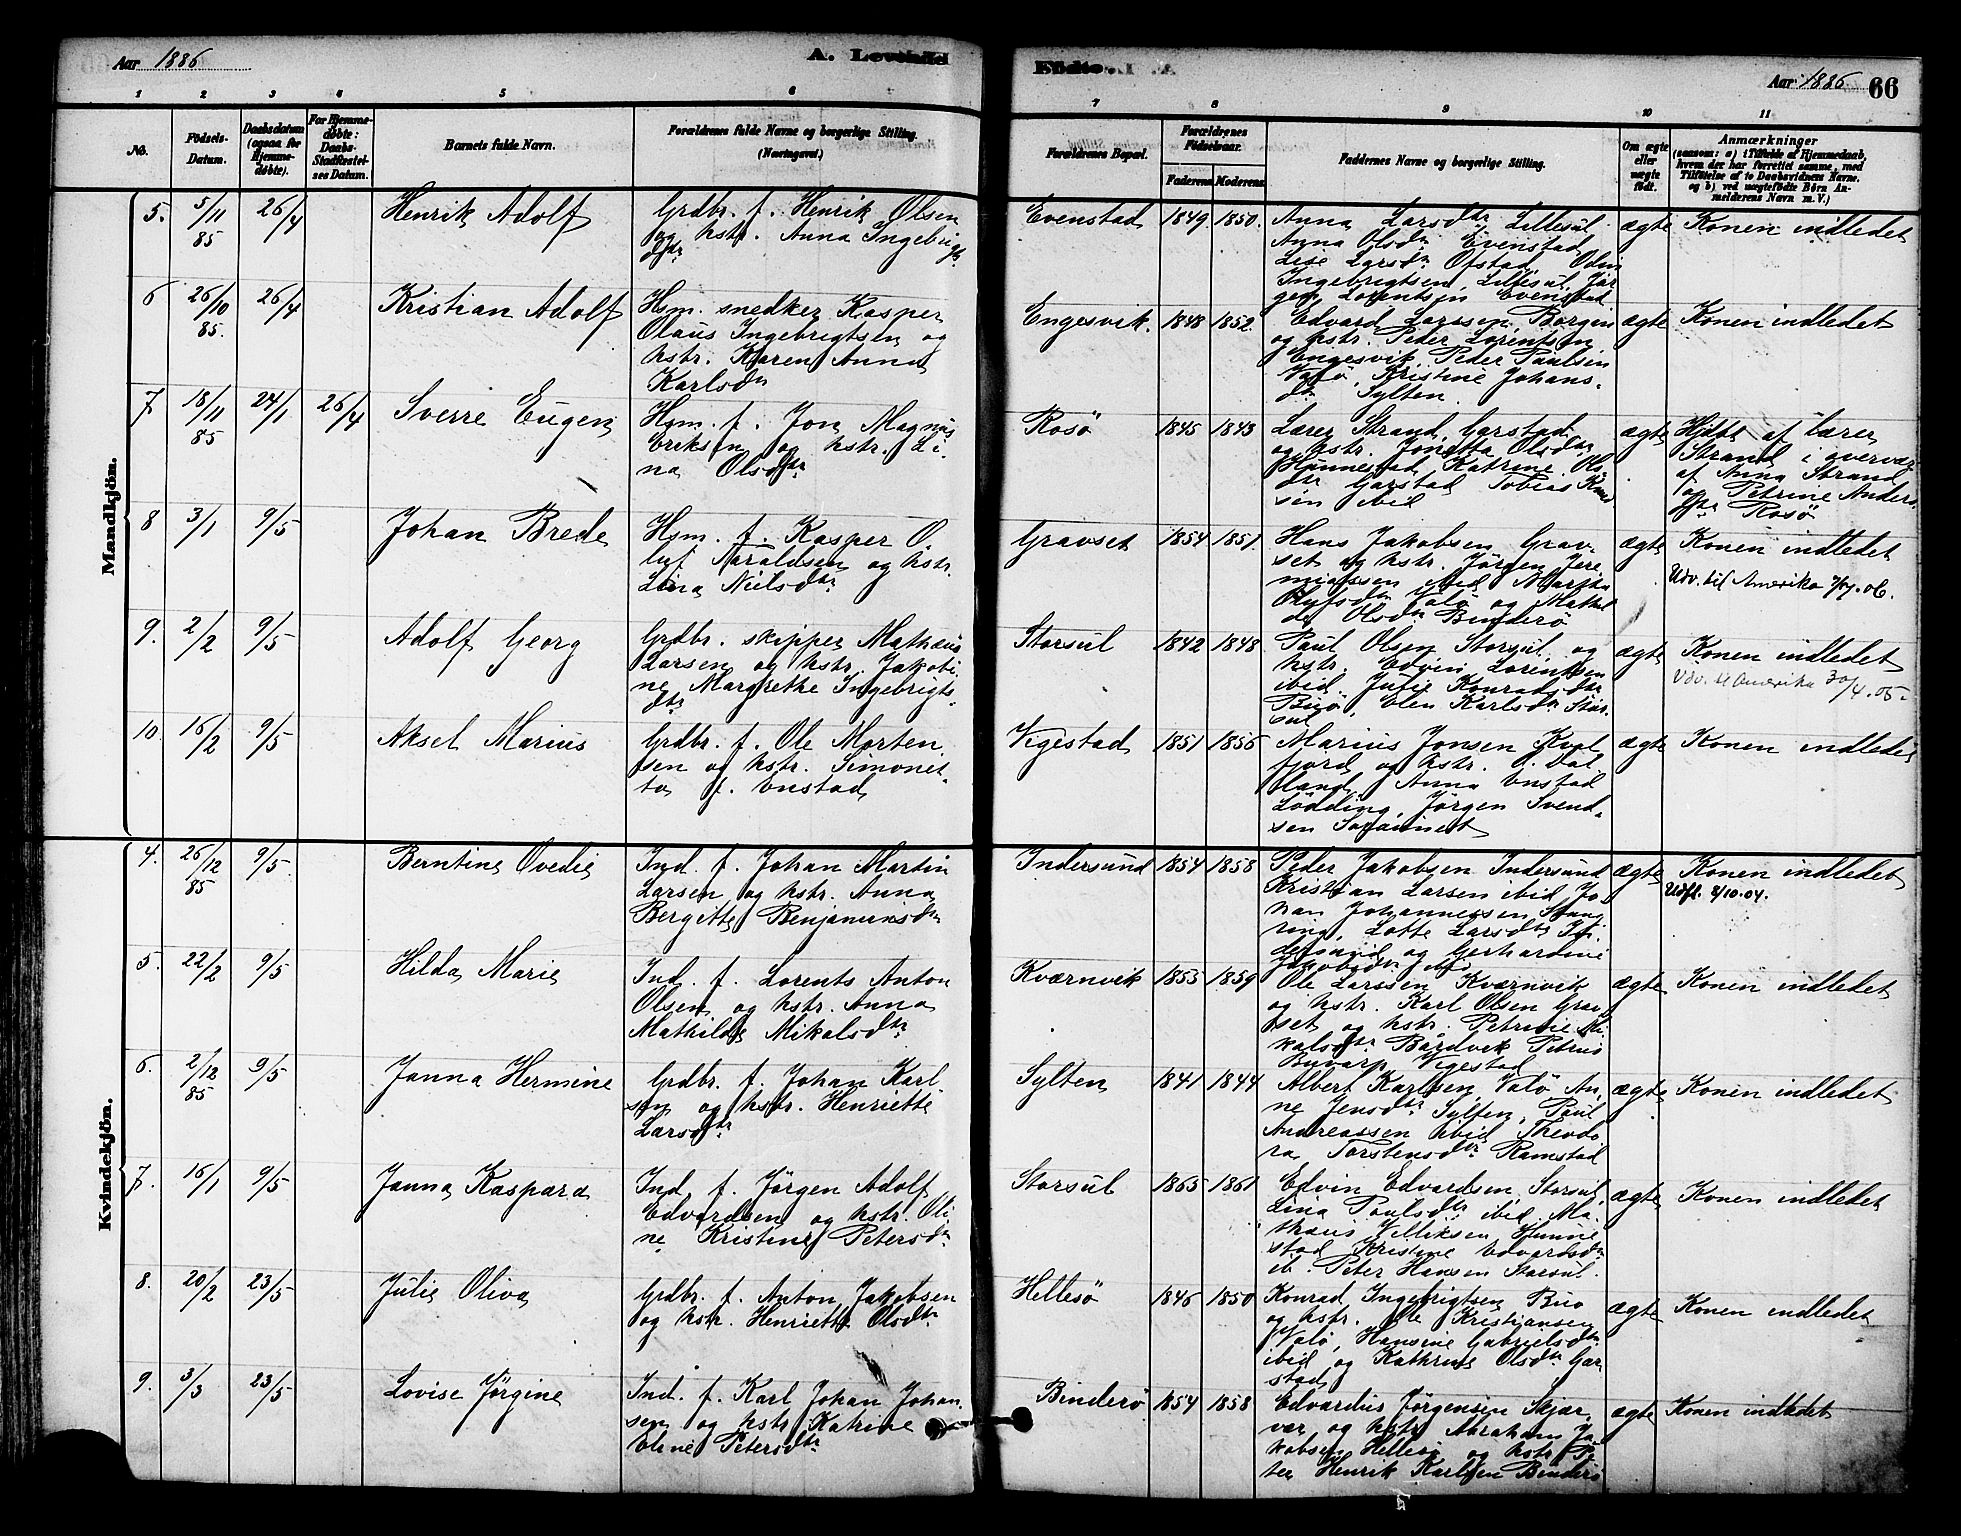 Aar 1886
A. Levende
Fødte.
Aar 1886 66
1 2 3 4 5 6 7 8 9 10 11
No.
Fødsels-
Datum.
Daabsdatum
(ogsaa for
Hjemme-
døbte).
For Hjemme-
døbte:
Daabs-
Stadfæstel-
ses Datum.
Barnets fulde Navn.
Forældrenes fulde Navne og borgerlige Stilling.
(Næringsvei.)
Forældrenes Bopæl.
Forældrenes
Fødselsaar.
Faderens. Moderens.
Faddernes Navne og borgerlige Stilling.
Om ægte
eller
uægte
født.
Anmærkninger
(saasom: a) i Tilfælde af Hjemmedaab,
hvem der har forrettet samme, med
Tilføielse af to Daabsvidners Navne.
og b) ved uægtefødte Børn An-
melderens Navn m. V.)
Mandkjön.
5. 5/11 85 26/4 Henrik Adolf
Grdbr. f. Henrik Olsen
og hstr. Anna Ingebrigts
dtr
Evenstad 1849 1850.
Anna Larsdtr Lillesul
Anna Olsdtr Evenstad
Lise Larsdtr Ofstad Olin
Ingebrigtsen Lillesul, Jör
gen Lorentsen Evenstad
ægte Konen indledet
6 26/10 85. 26/4 Kristian Adolf
Hsm. snedker Kasper
Olaus Ingebrigtsen og
hstr. Karen Anna
Karlsdtr
Engesvik. 1848 1852.
Edvard Larssen, Borgin
og hstr. Peder Lorentsen
Engesvik Peder Paulsen
Valö, Kristine Johans-
dtr Sylten.
ægte Konen indledet
7 18/11 85 24/1 26/4 Sverre Eugen
Hsm. f. Jon Magnus
Eriksen og hstr. Li-
na Olsdtr
Rosö 1845 1843
Lærer Strand, Garstad
og hstr. Jonetta Olsdtr
Hunnestad Katrine Ols
dtr Garstad Tobias
sen ibid
ægte
Hjdbt af lærer
Strand i overvær
af Anna Strand
og Petrine Anders
dtr Rosö
8 3/1 9/5 Johan Brede
Hsm. f. Kasper O
luf Haraldsen og hstr.
Lina Nielsdtr
Gravset 1854 1851.
Hans Jakobsen Grav-
set og hstr. Jörgen Jere
miassen ibid Martha
Olufsdtr Valö og Mathil
de Olsdtr Binderö
ægte Konen indledet
Udv. til Amerika 7/7.06.
9. 2/2 9/5 Adolf Georg
Grdbr. skipper Mathæus
Larsen og hstr. Jakobi-
ne Margrethe Ingebrigts-
dtr
Storsul 1842 1848
Paul Olsen Storsul og
hstr. Edvin Lorentsen
ibid. Julie Konradsdtr
Buö, Elen Karlsdtr Stor-
sul
ægte Konen indledet
Udv. til Amerika 30/4.05-
10. 16/2 9/5 Aksel Marius
Grdbr. f. Ole Morten
sen og hstr. Simonet-
ta f. Enstad
Vigestad 1851 1856
Marius Jonsen Kval
fjord og hstr. O. Dal
Anna Enstad
Lödding, Jörgen Svend-
sen
ægte Konen indledet
Kvindekjön.
4. 26/12 85 9/5. Berntine Ovedie
Ind. f. Johan Martin
Larsen og hstr. Anna
Bergitte Benjaminsdtr
Indersund 1854 1858
Peder Jakobsen Indersund
Kristian Larsen ibid Jo-
han Johannessen Stang
ring, Lotte Larsdtr In
dersund og Gerhardine
Jakobsdtr ibid
ægte Konen indledet
Udfl. 8/10.04.
5. 22/2 9/5 Hilda Marie
Ind. f. Lorents Anton
Olsen og hstr. Anna
Mathilde Mikalsdtr
Kværnvik 1853 1859
Ole Larssen Kværnvik
og hstr. Karl Olsen Grav
set og hstr. Petrine Mi
kalsdtr Bardvik Petrus
Buvarp Vigestad
ægte Konen indledet
6. 2/12 85 9/5 Janna Hermine
Grdbr. f. Johan Karl-
sen og hstr. Henriette
Larsdtr
Sylten 1841 1844
Albert Karlsen, Valö An-
ne Jensdtr Sylten, Paul
Andreassen ibid Theodo
ra Torstensdtr Ramstad
ægte Konen indledet
7. 16/1 9/5 Janna Kaspara
Ind. f. Jörgen Adolf
Edvardsen og hstr. Oli
ne Kristine Petersdtr
Storsul 1865 1861
Edvin Edvardsen, Storsul,
Lina Paulsdtr ibid Ma-
thæus Villiksen, Hunne
stad Kristine Edvardsdtr
ib. Peter Hansen Storsul.
ægte Konen indledet
8. 20/2 23/5 Julie Oliva
Grdbr. f. Anton Jakobsen
og hstr. Henriette Olsdtr
Hellesö 1846 1850
Konrad Ingebrigtsen Buö
og hstr. Ole Kristiansen
Valö, Hansine Gabrielsdtr
ibid og Kathrine Olsdtr Gar
stad
ægte Konen indledet
9. 3/3 23/5 Lovise Jörgine
Ind. f. Karl Johan Johan
sen og hstr Katrine
Eline Petersdtr
Binderö 1854 1858
Edvardus Jörgensen Skjær
vær og hstr Abraham Ja
kobsen Hellesö og hstr Pe
ter Henrik Karlsen Binderö
ægte Konen indledet